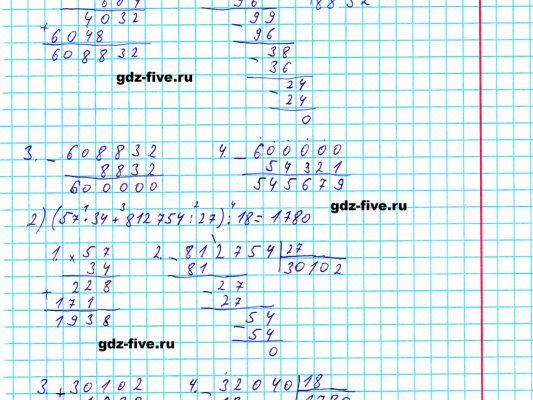 4032
+
6048
608832
99
- 96
- 38
36
- 24
- 24
0
gdz-five.ru
3. - 608832
8832
600000
4. - 600000
54321
545679
gdz-five.ru
2) (57·34+812754:27):18=1780
1 × 57
34
+ 228
171
1938
2. - 812754 | 27
81
30102
- 27
27
- 54
- 54
0
gdz-five.ru
3. + 30102
4. - 32040 | 18
1780